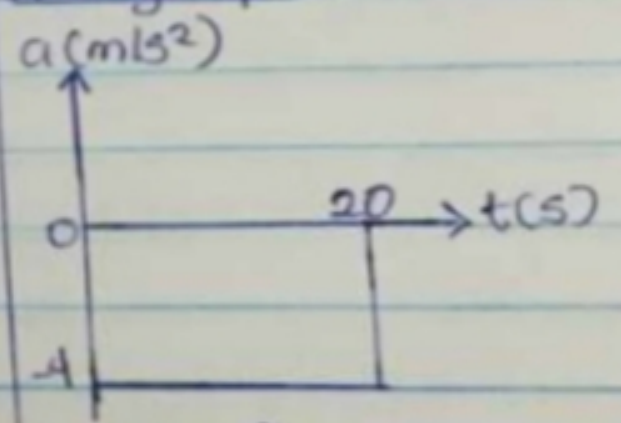 a(m/s²)
20
t(s)
0
-4